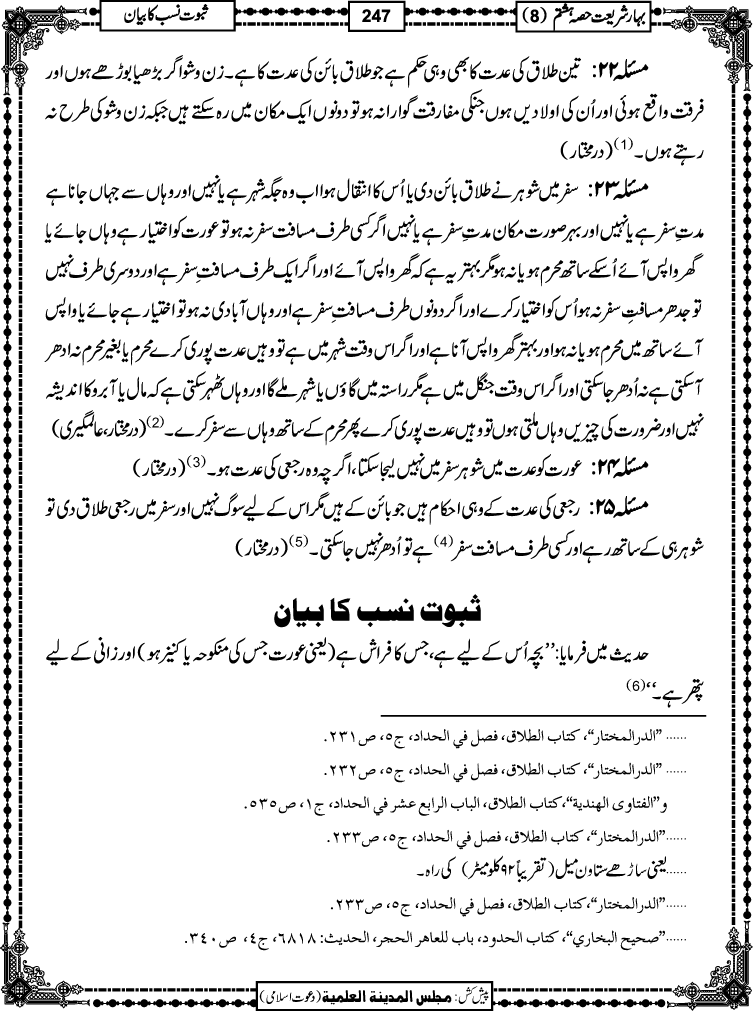 بہار شریعت حصہ ہشتم (8)
247
ثبوت نسب کا بیان
مسئلہ ۲۲: تین طلاق کی عدت کا بھی وہی حکم ہے جو طلاق بائن کی عدت کا ہے۔ زن وشو اگر بڑھیا بوڑھے ہوں اور
فرقت واقع ہوئی اور اُن کی اولادیں ہوں جنکی مفارقت گوارا نہ ہو تو دونوں ایک مکان میں رہ سکتے ہیں جبکہ زن وشو کی طرح نہ
رہتے ہوں۔(1) (درمختار)
مسئلہ ۲۳: سفر میں شوہر نے طلاق بائن دی یا اُس کا انتقال ہوا اب وہ جگہ شہر ہے یا نہیں اور وہاں سے جہاں جانا ہے
مدتِ سفر ہے یا نہیں اور بہر صورت مکان مدتِ سفر ہے یا نہیں اگر کسی طرف مسافت سفر نہ ہو تو عورت کو اختیار ہے وہاں جائے یا
گھر واپس آئے اُسکے ساتھ محرم ہو یا نہ ہو مگر بہتر یہ ہے کہ گھر واپس آئے اور اگر ایک طرف مسافتِ سفر ہے اور دوسری طرف نہیں
تو جدھر مسافتِ سفر نہ ہو اُس کو اختیار کرے اور اگر دونوں طرف مسافتِ سفر ہے اور وہاں آبادی نہ ہو تو اختیار ہے جائے یا واپس
آئے ساتھ میں محرم ہو یا نہ ہو اور بہتر گھر واپس آنا ہے اور اگر اس وقت شہر میں ہے تو وہیں عدت پوری کرے محرم یا بغیر محرم نہ ادھر
آسکتی ہے نہ اُدھر جاسکتی اور اگر اس وقت جنگل میں ہے مگر راستہ میں گاؤں یا شہر ملے گا اور وہاں ٹھہر سکتی ہے کہ مال یا آبرو کا اندیشہ
نہیں اور ضرورت کی چیزیں وہاں ملتی ہوں تو وہیں عدت پوری کرے پھر محرم کے ساتھ وہاں سے سفر کرے۔(2) (درمختار، عالمگیری)
مسئلہ ۲۴: عورت کو عدت میں شوہر سفر میں نہیں لیجا سکتا، اگرچہ وہ رجعی کی عدت ہو۔(3) (درمختار)
مسئلہ ۲۵: رجعی کی عدت کے وہی احکام ہیں جو بائن کے ہیں مگر اس کے لیے سوگ نہیں اور سفر میں رجعی طلاق دی تو
شوہر ہی کے ساتھ رہے اور کسی طرف مسافت سفر(4) ہے تو اُدھر نہیں جاسکتی۔(5) (درمختار)
ثبوت نسب کا بیان
حدیث میں فرمایا: ’’بچہ اُس کے لیے ہے، جس کا فراش ہے (یعنی عورت جس کی منکوحہ یا کنیز ہو) اور زانی کے لیے
پتھر ہے۔‘‘(6)
......”الدرالمختار“، کتاب الطلاق، فصل في الحداد، ج٥، ص٢٣١.
......”الدرالمختار“، کتاب الطلاق، فصل في الحداد، ج٥، ص٢٣٢.
و”الفتاوى الهندية“،کتاب الطلاق، الباب الرابع عشر في الحداد، ج١، ص٥٣٥.
......”الدرالمختار“، کتاب الطلاق، فصل في الحداد، ج٥، ص٢٣٣.
......یعنی ساڑھے ستاون میل (تقریباً ۹۲ کلومیٹر) کی راہ۔
......”الدرالمختار“،کتاب الطلاق، فصل في الحداد، ج٥، ص٢٣٣.
......”صحيح البخاري“، کتاب الحدود، باب للعاهر الحجر، الحديث: ٦٨١٨، ج٤، ص٣٤٠.
پیش کش: مجلس المدینة العلمیة (دعوت اسلامی)